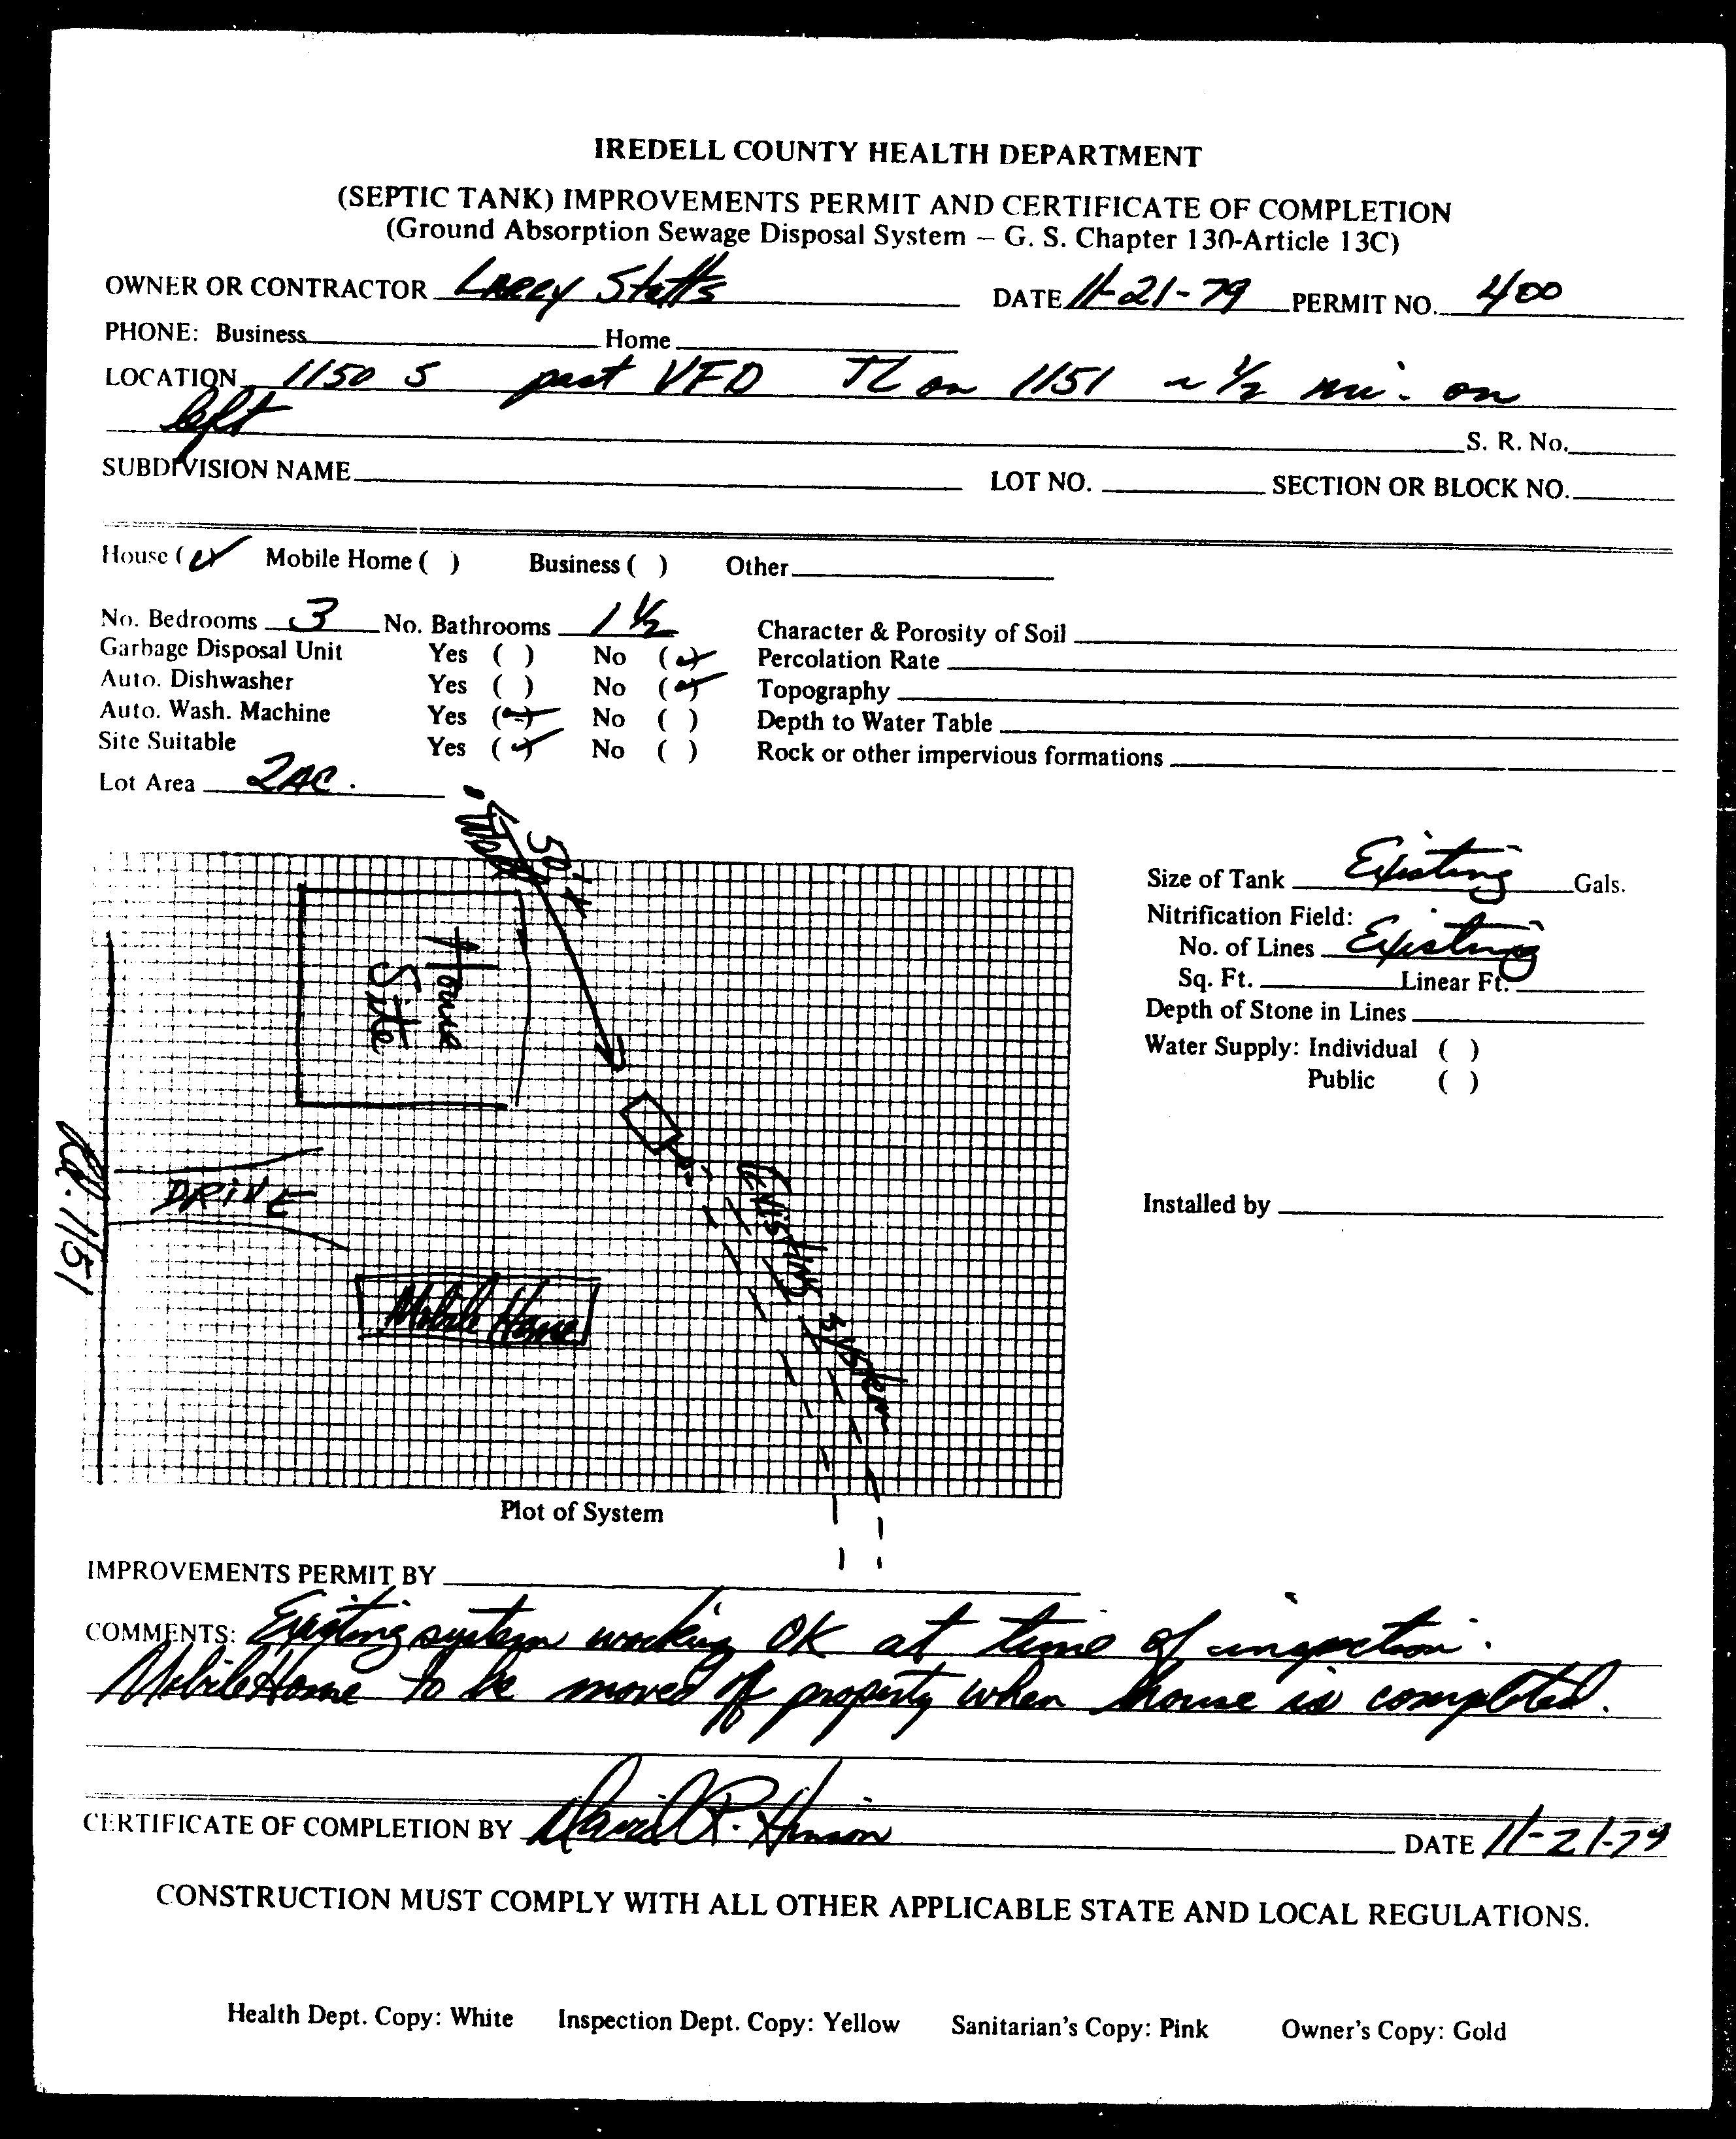 IREDELL COUNTY HEALTH DEPARTMENT
(SEPTIC TANK) IMPROVEMENTS PERMIT AND CERTIFICATE OF COMPLETION
(Ground Absorption Sewage Disposal System – G. S. Chapter 130-Article 13C)
OWNER OR CONTRACTOR Larry Stotts DATE 11-21-79 PERMIT NO. 400
PHONE: Business Home
LOCATION 1150 S past VFD TL on 1151 ~ 1/2 mi. on
left
S. R. No.
SUBDIVISION NAME LOT NO. SECTION OR BLOCK NO.
House (✓) Mobile Home ( ) Business ( ) Other
No. Bedrooms 3 No. Bathrooms 1 1/2 Character & Porosity of Soil
Garbage Disposal Unit Yes ( ) No (✓) Percolation Rate
Auto. Dishwasher Yes ( ) No (✓) Topography
Auto. Wash. Machine Yes (✓) No ( ) Depth to Water Table
Site Suitable Yes (✓) No ( ) Rock or other impervious formations
Lot Area 2AC.
Well
50'+
House
Site
Rd. 1151
DRIVE
Mobile Home
EXISTING SYSTEM
Size of Tank Existing Gals.
Nitrification Field:
No. of Lines Existing
Sq. Ft. Linear Ft.
Depth of Stone in Lines
Water Supply: Individual ( )
Public ( )
Installed by
Plot of System
IMPROVEMENTS PERMIT BY
COMMENTS: Existing system working OK at time of inspection.
Mobile Home to be moved off property when house is completed.
CERTIFICATE OF COMPLETION BY David R. Hinson DATE 11-21-79
CONSTRUCTION MUST COMPLY WITH ALL OTHER APPLICABLE STATE AND LOCAL REGULATIONS.
Health Dept. Copy: White Inspection Dept. Copy: Yellow Sanitarian's Copy: Pink Owner's Copy: Gold